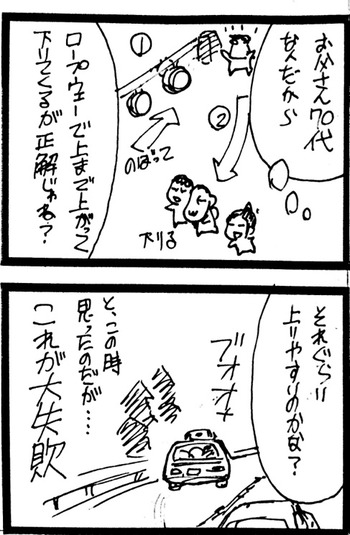 お父さん70代
なんだから
①
②
のぼって
下りる
ロープウェーで上まで上がって
下りてくるが正解じゃね？
それぐらい
上りやすいのかな？
ブオオ
と、この時
思ったのだが…
これが大失敗